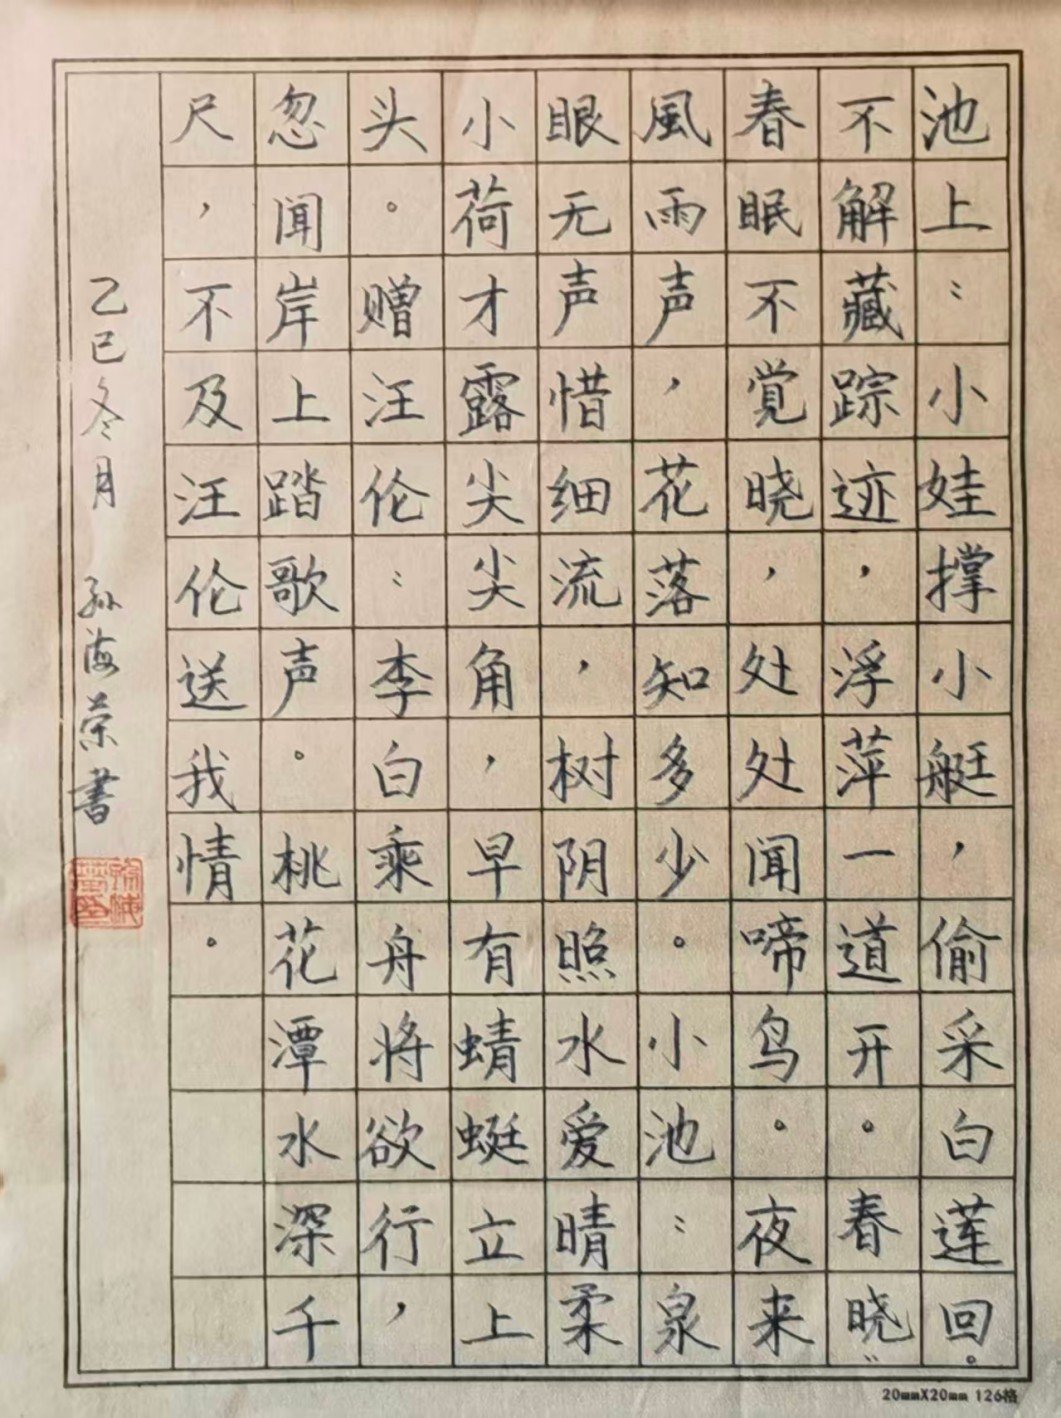 池上：小娃撑小艇，偷采白莲回。
不解藏踪迹，浮萍一道开。春晓：
春眠不觉晓，处处闻啼鸟。夜来
風雨声，花落知多少。小池：泉
眼无声惜细流，树阴照水爱晴柔
小荷才露尖尖角，早有蜻蜓立上
头。赠汪伦：李白乘舟将欲行，
忽闻岸上踏歌声。桃花潭水深千
尺，不及汪伦送我情。
乙巳冬月 孙海荣書
20mmX20mm 126格